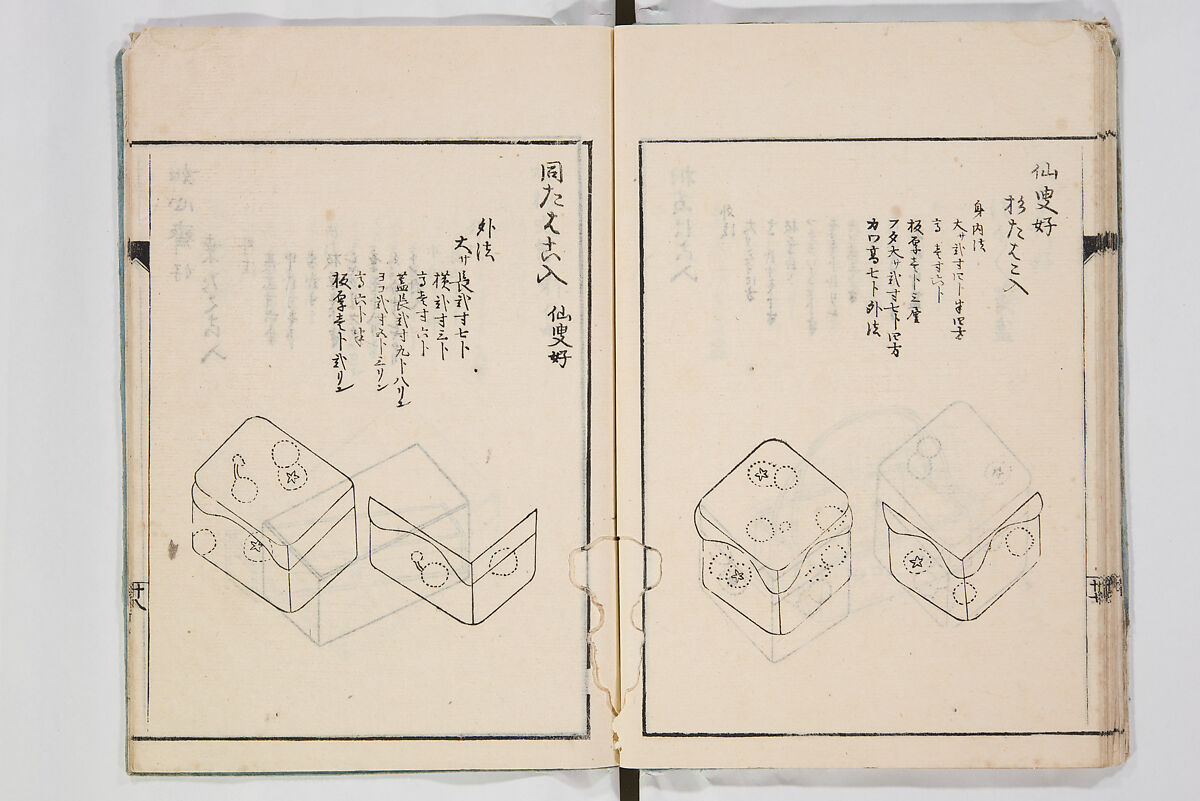 仙叟好
杉たはこ入
身内法
大サ弐寸四ト半四方
高壱寸六ト
板厚壱ト三厘
フタ大サ弐寸七ト四方
カワ高七ト外法
同たはこ入 仙叟好
外法
大サ長弐寸七ト
横弐寸三ト
高壱寸六ト
蓋長弐寸九ト八リン
ヨコ弐寸五ト三リン
高六ト半
板厚壱ト弐リン
十八